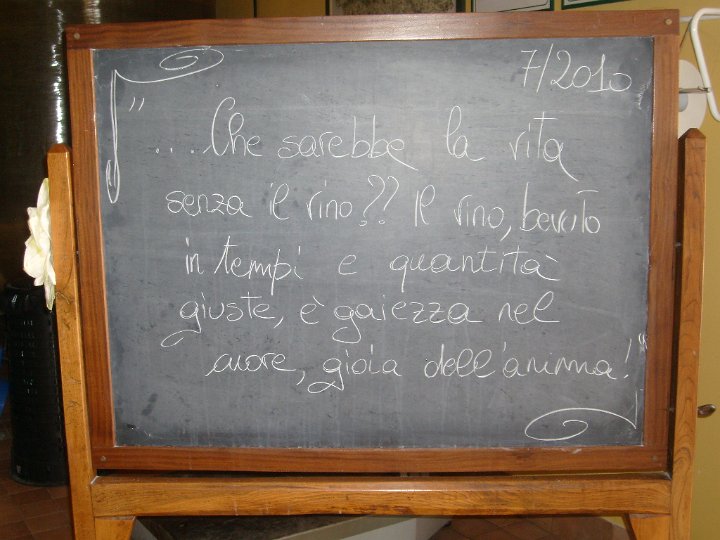 7/2010
"....Che sarebbe la vita
senza il vino?? Il vino, bevuto
in tempi e quantità
giuste, è gaiezza nel
cuore, gioia dell'anima!"